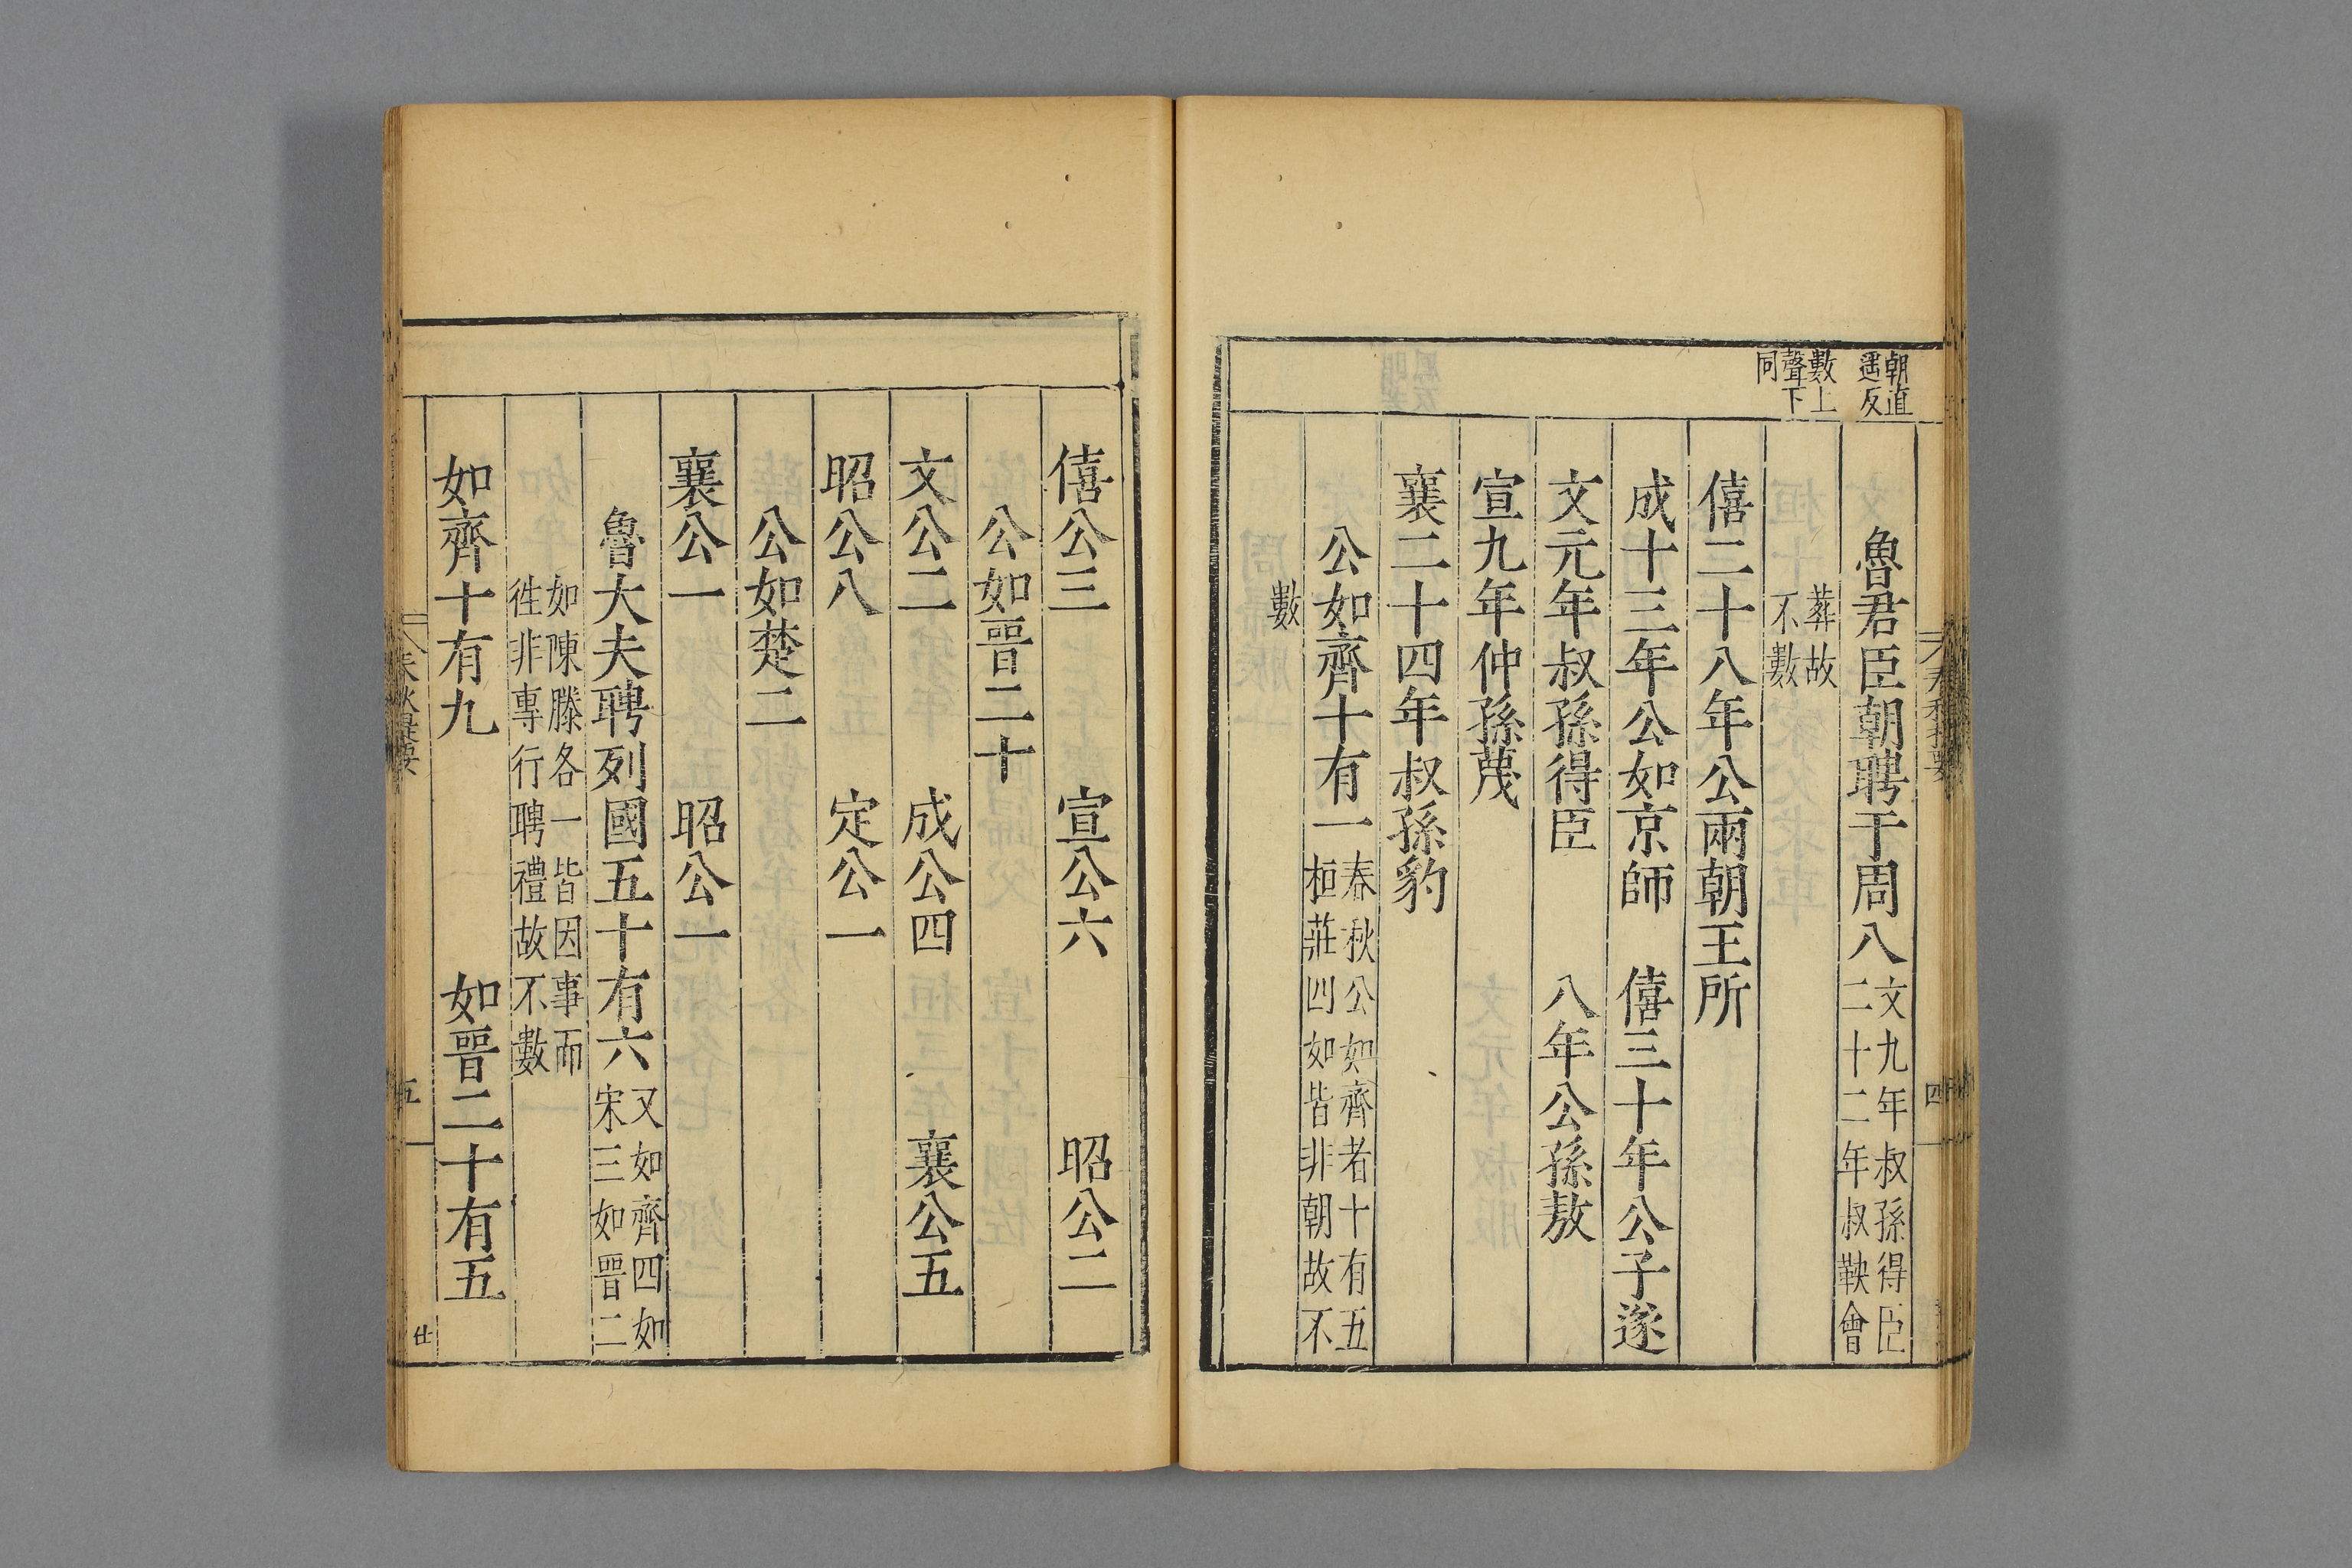 朝直
遥反
數上
聲下
同
魯君臣朝聘于周八文九年叔孫得臣
二十二年叔鞅會
葬故
不數
僖二十八年公兩朝王所
成十三年公如京師 僖三十年公子遂
文元年叔孫得臣 八年公孫敖
宣九年仲孫蔑
襄二十四年叔孫豹
公如齊十有一春秋公如齊者十有五
桓莊四如皆非朝故不
數
春秋提要
四
僖公三 宣公六 昭公二
公如晉二十
文公二 成公四 襄公五
昭公八 定公一
公如楚二
襄公一 昭公一
魯大夫聘列國五十有六又如齊四如
宋三如晉二
如陳滕各一皆因事而
徃非專行聘禮故不數
如齊十有九 如晉二十有五
春秋提要
五
仕